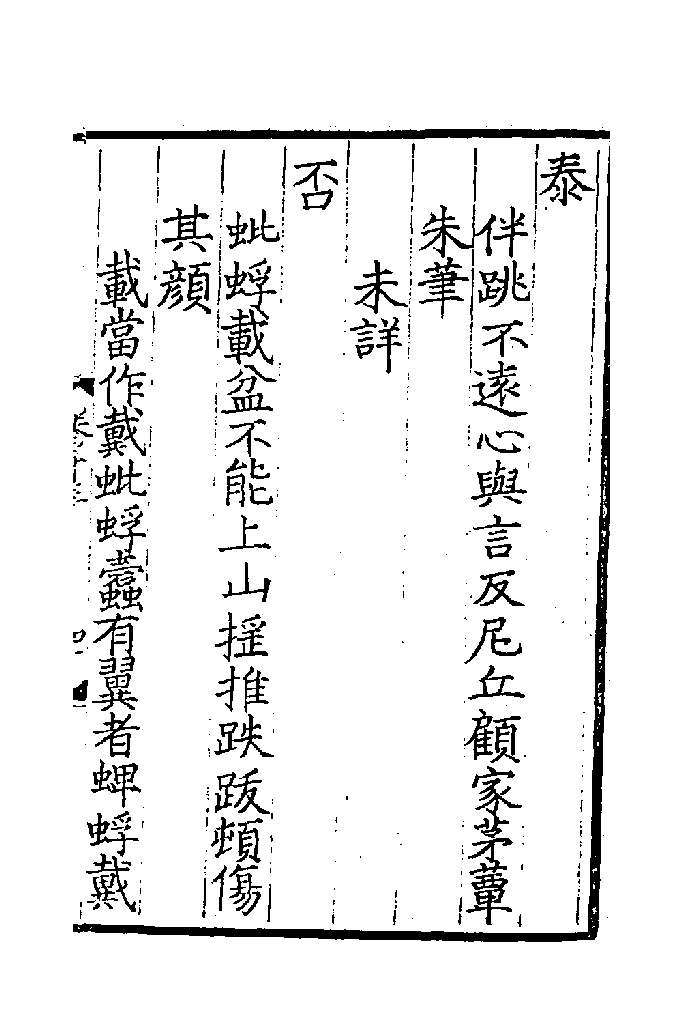 泰
伴跳不遠心與言反尼丘顧家茅蕇
朱華
未詳
否
蚍蜉載盆不能上山揺推跌跋頓傷
其顔
載當作戴蚍蜉蠹有翼者蜱蜉戴